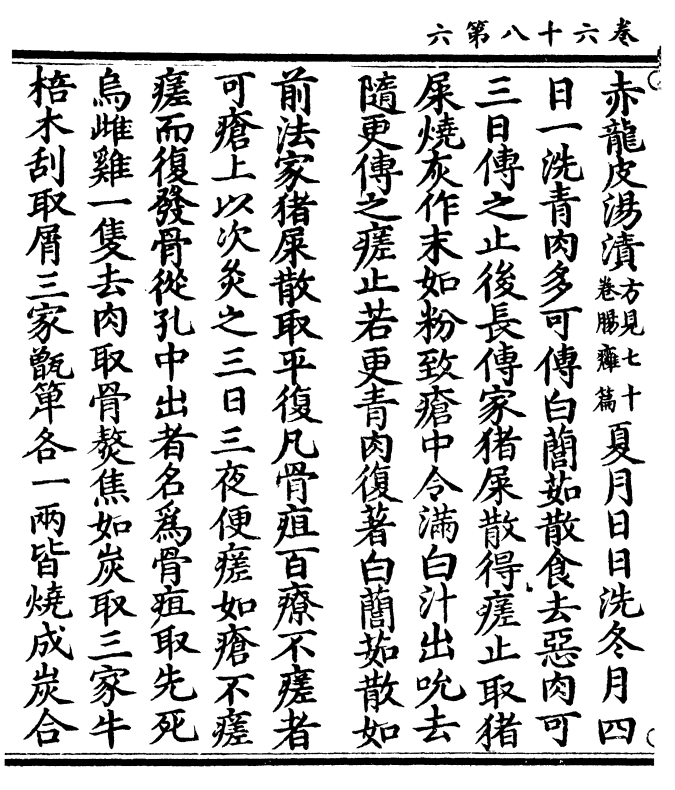 卷六十八第六
赤龍皮湯漬方見七十卷腸癰篇夏月日日洗冬月四
日一洗青肉多可傅白䕡茹散食去惡肉可
三日傅之止後長傅家猪屎散得瘥止取猪
屎燒灰作末如粉致瘡中令滿白汁出吮去
隨更傅之瘥止若更青肉復著白䕡茹散如
前法家猪屎散取平復凡骨疽百療不瘥者
可瘡上以次灸之三日三夜便瘥如瘡不瘥
瘥而復發骨從孔中出者名為骨疽取先死
烏雌雞一隻去肉取骨熬焦如炭取三家牛
棓木刮取屑三家甑箄各一兩皆燒成炭合